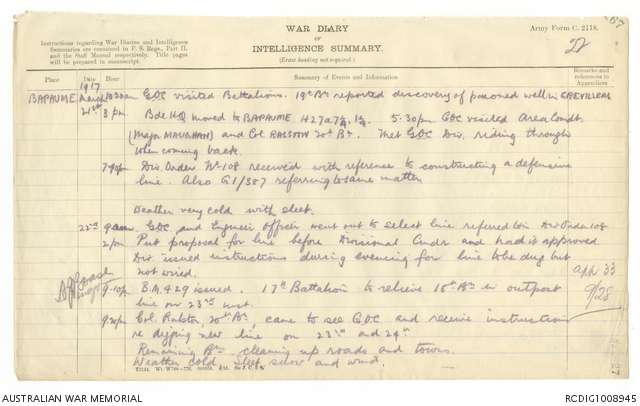 WAR DIARY
or
INTELLIGENCE SUMMARY.
(Erase heading not required.)
Army Form C. 2118.
22
Instructions regarding War Diaries and Intelligence
Summaries are contained in F. S. Regs., Part II.
and the Staff Manual respectively. Title pages
will be prepared in manuscript.
Place
Date
Hour
Summary of Events and Information
Remarks and
references to
Appendices
1917
BAPAUME March 10.30am GOC visited Battalions. 19th Bn reported discovery of poisoned well in GREVILLERS
21st 3pm Bde HQ moved to BAPAUME H27a7¼.1½. 5.30pm GOC visited Area Comdt
(Major MAUGHAN) and Col RALSTON 20th Bn. Met GOC Div. riding through
when coming back.
7.40pm Div Order No 108 received with reference to constructing a defensive
line. Also G1/387 referring to same matter
Weather very cold with sleet.
22nd 9am GOC and Engineer Officer went out to select line referred to in Div Order 108
2pm Put proposal for line before Divisional Cmdr and had it approved
Div issued instructions during evening for line to be dug but
not wired.
9.10pm B.M. 429 issued. 17th Battalion to relieve 18th Bn in outpost
line on 23rd inst.
App 33
9/28
9.20pm Col. Ralston, 20th Bn, came to see GOC and receive instruction
re digging new line on 23rd and 24th
Remaining Bns cleaning up roads and towns.
Weather cold. Sleet snow and wind.
AUSTRALIAN WAR MEMORIAL
RCDIG1008945